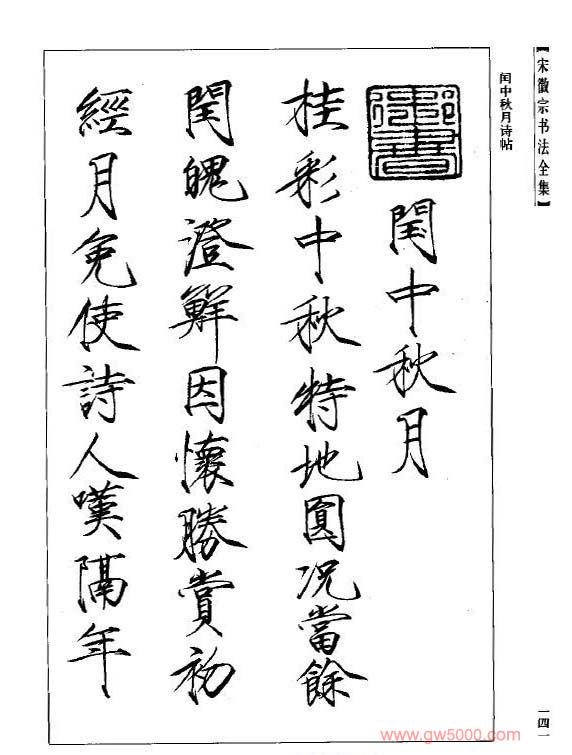 【宋徽宗书法全集】
闰中秋月诗帖
御書
閏中秋月
桂彩中秋特地圓况當餘
閏魄澄鮮因懷勝賞初
經月免使詩人嘆隔年
一四一
www.gw5000.com